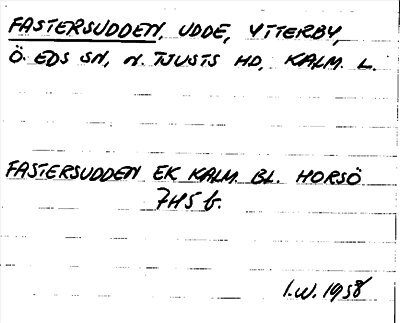 FASTERSUDDEN, UDDE, YTTERBY,
Ö. EDS SN, N. TJUSTS HD, KALM. L.
FASTERSUDDEN EK KALM. BL. HORSÖ
7H5 f.
I.W. 1958